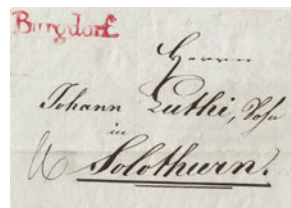 Burgdorf
Herrn
Johann Luthi, Sohn
in
Solothurn.